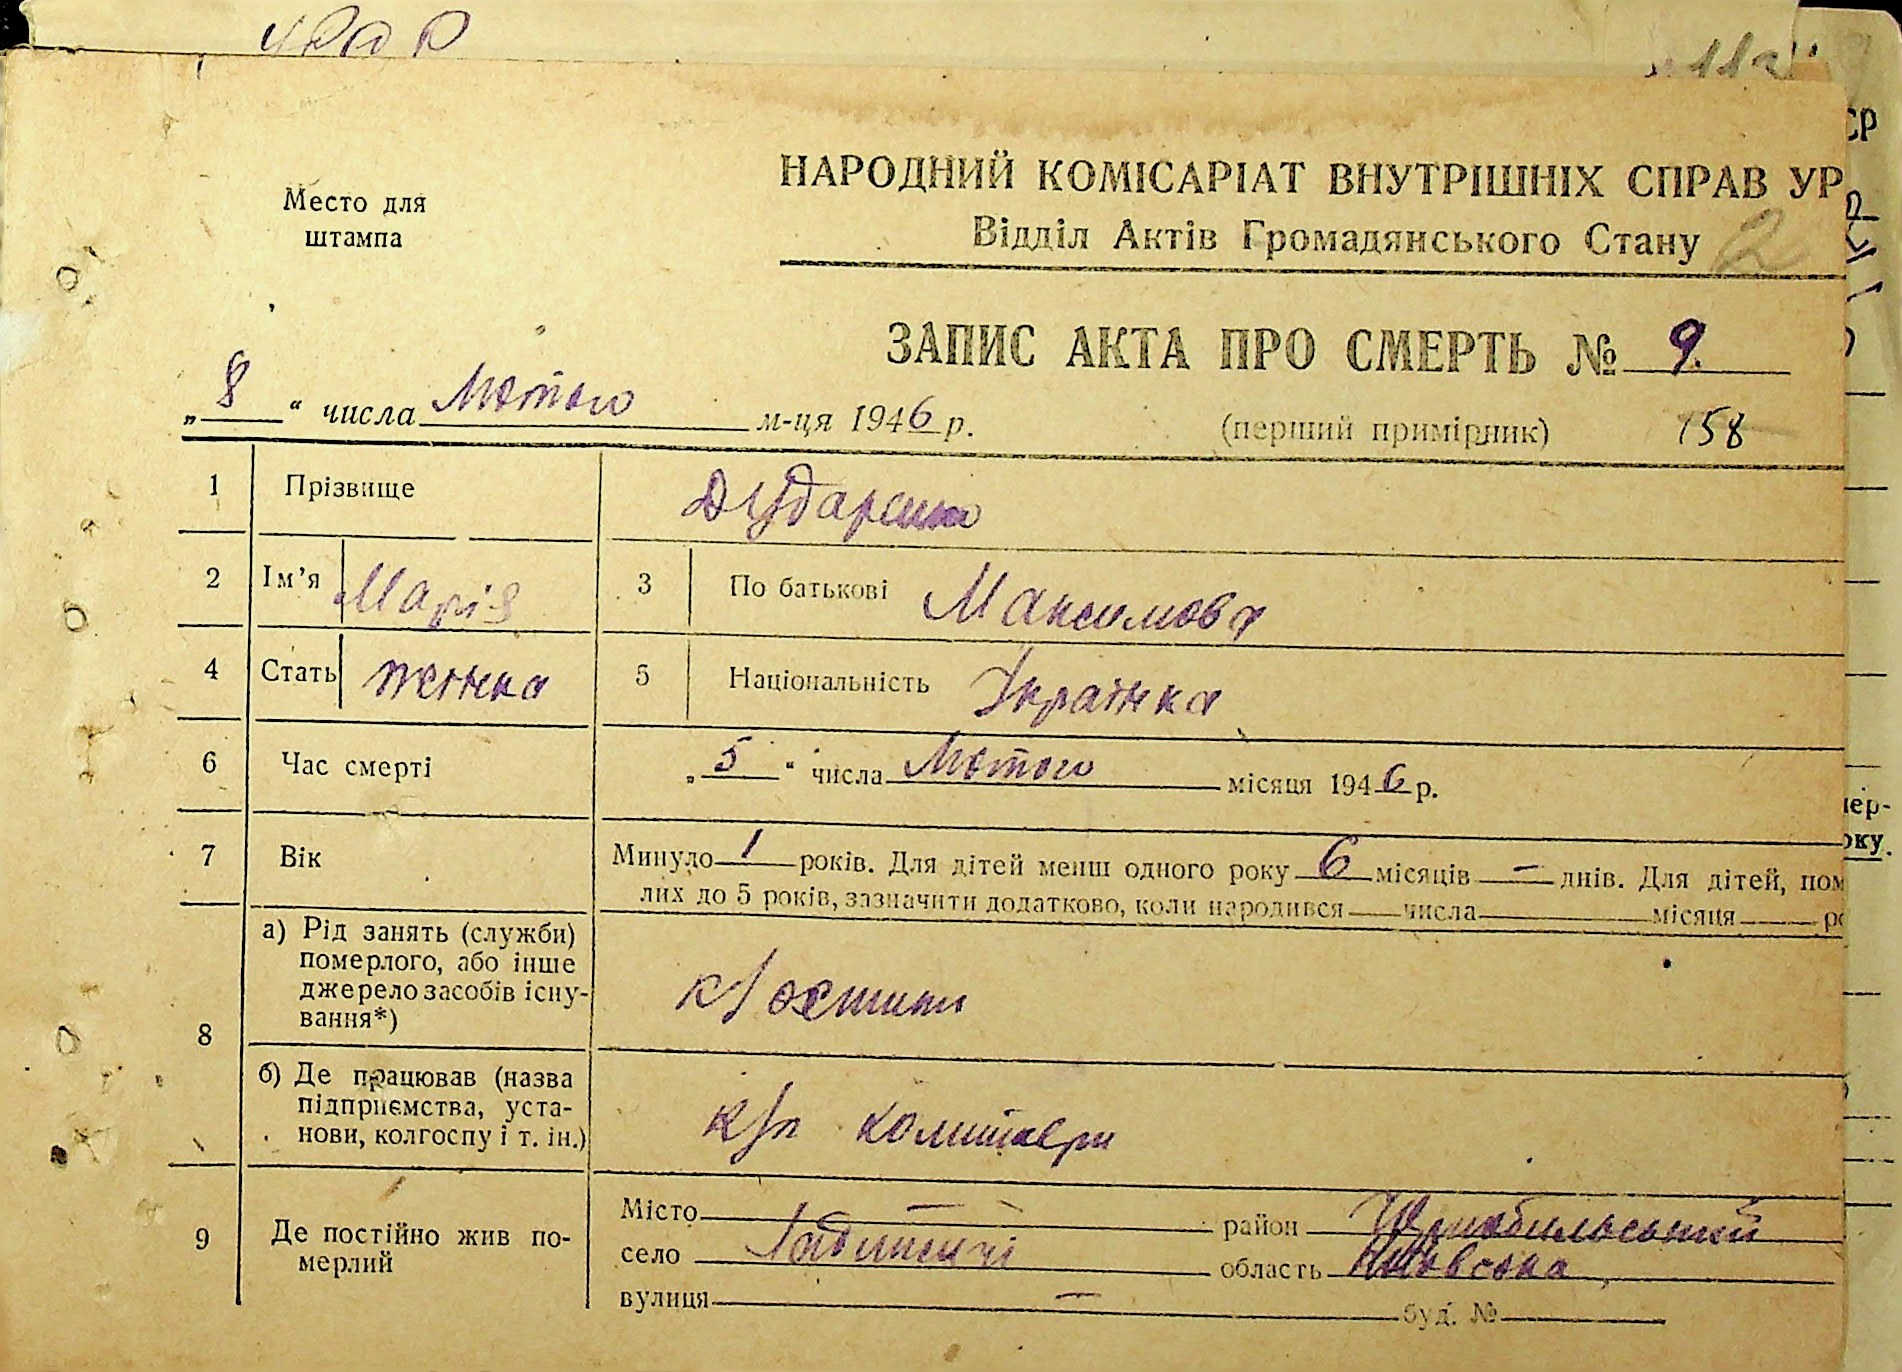 Место для
штампа
НАРОДНИЙ КОМІСАРІАТ ВНУТРІШНІХ СПРАВ УР
Відділ Актів Громадянського Стану 2
ЗАПИС АКТА ПРО СМЕРТЬ № 9.
„ 8 “ числа Лютого м-ця 1946 р.
(перший примірник) 158
1 Прізвище Дударенко
2 Ім’я Марія 3 По батькові Максимовa
4 Стать женска 5 Національність Українка
6 Час смерті „ 5 “ числа Лютого місяця 1946 р.
7 Вік Минуло 1 років. Для дітей менш одного року 6 місяців — днів. Для дітей, пом
лих до 5 років, зазначити додатково, коли народився числа місяця ро
8 а) Рід занять (служби)
померлого, або інше
джерело засобів існу-
вання*)
б) Де працював (назва
підприємства, уста-
нови, колгоспу і т. ін.)
к/г
9 Де постійно жив по-
мерлий
Місто — район Чорнобильський
село Ладижичі область Київська
вулиця — буд. №
СР
мер-
оку.